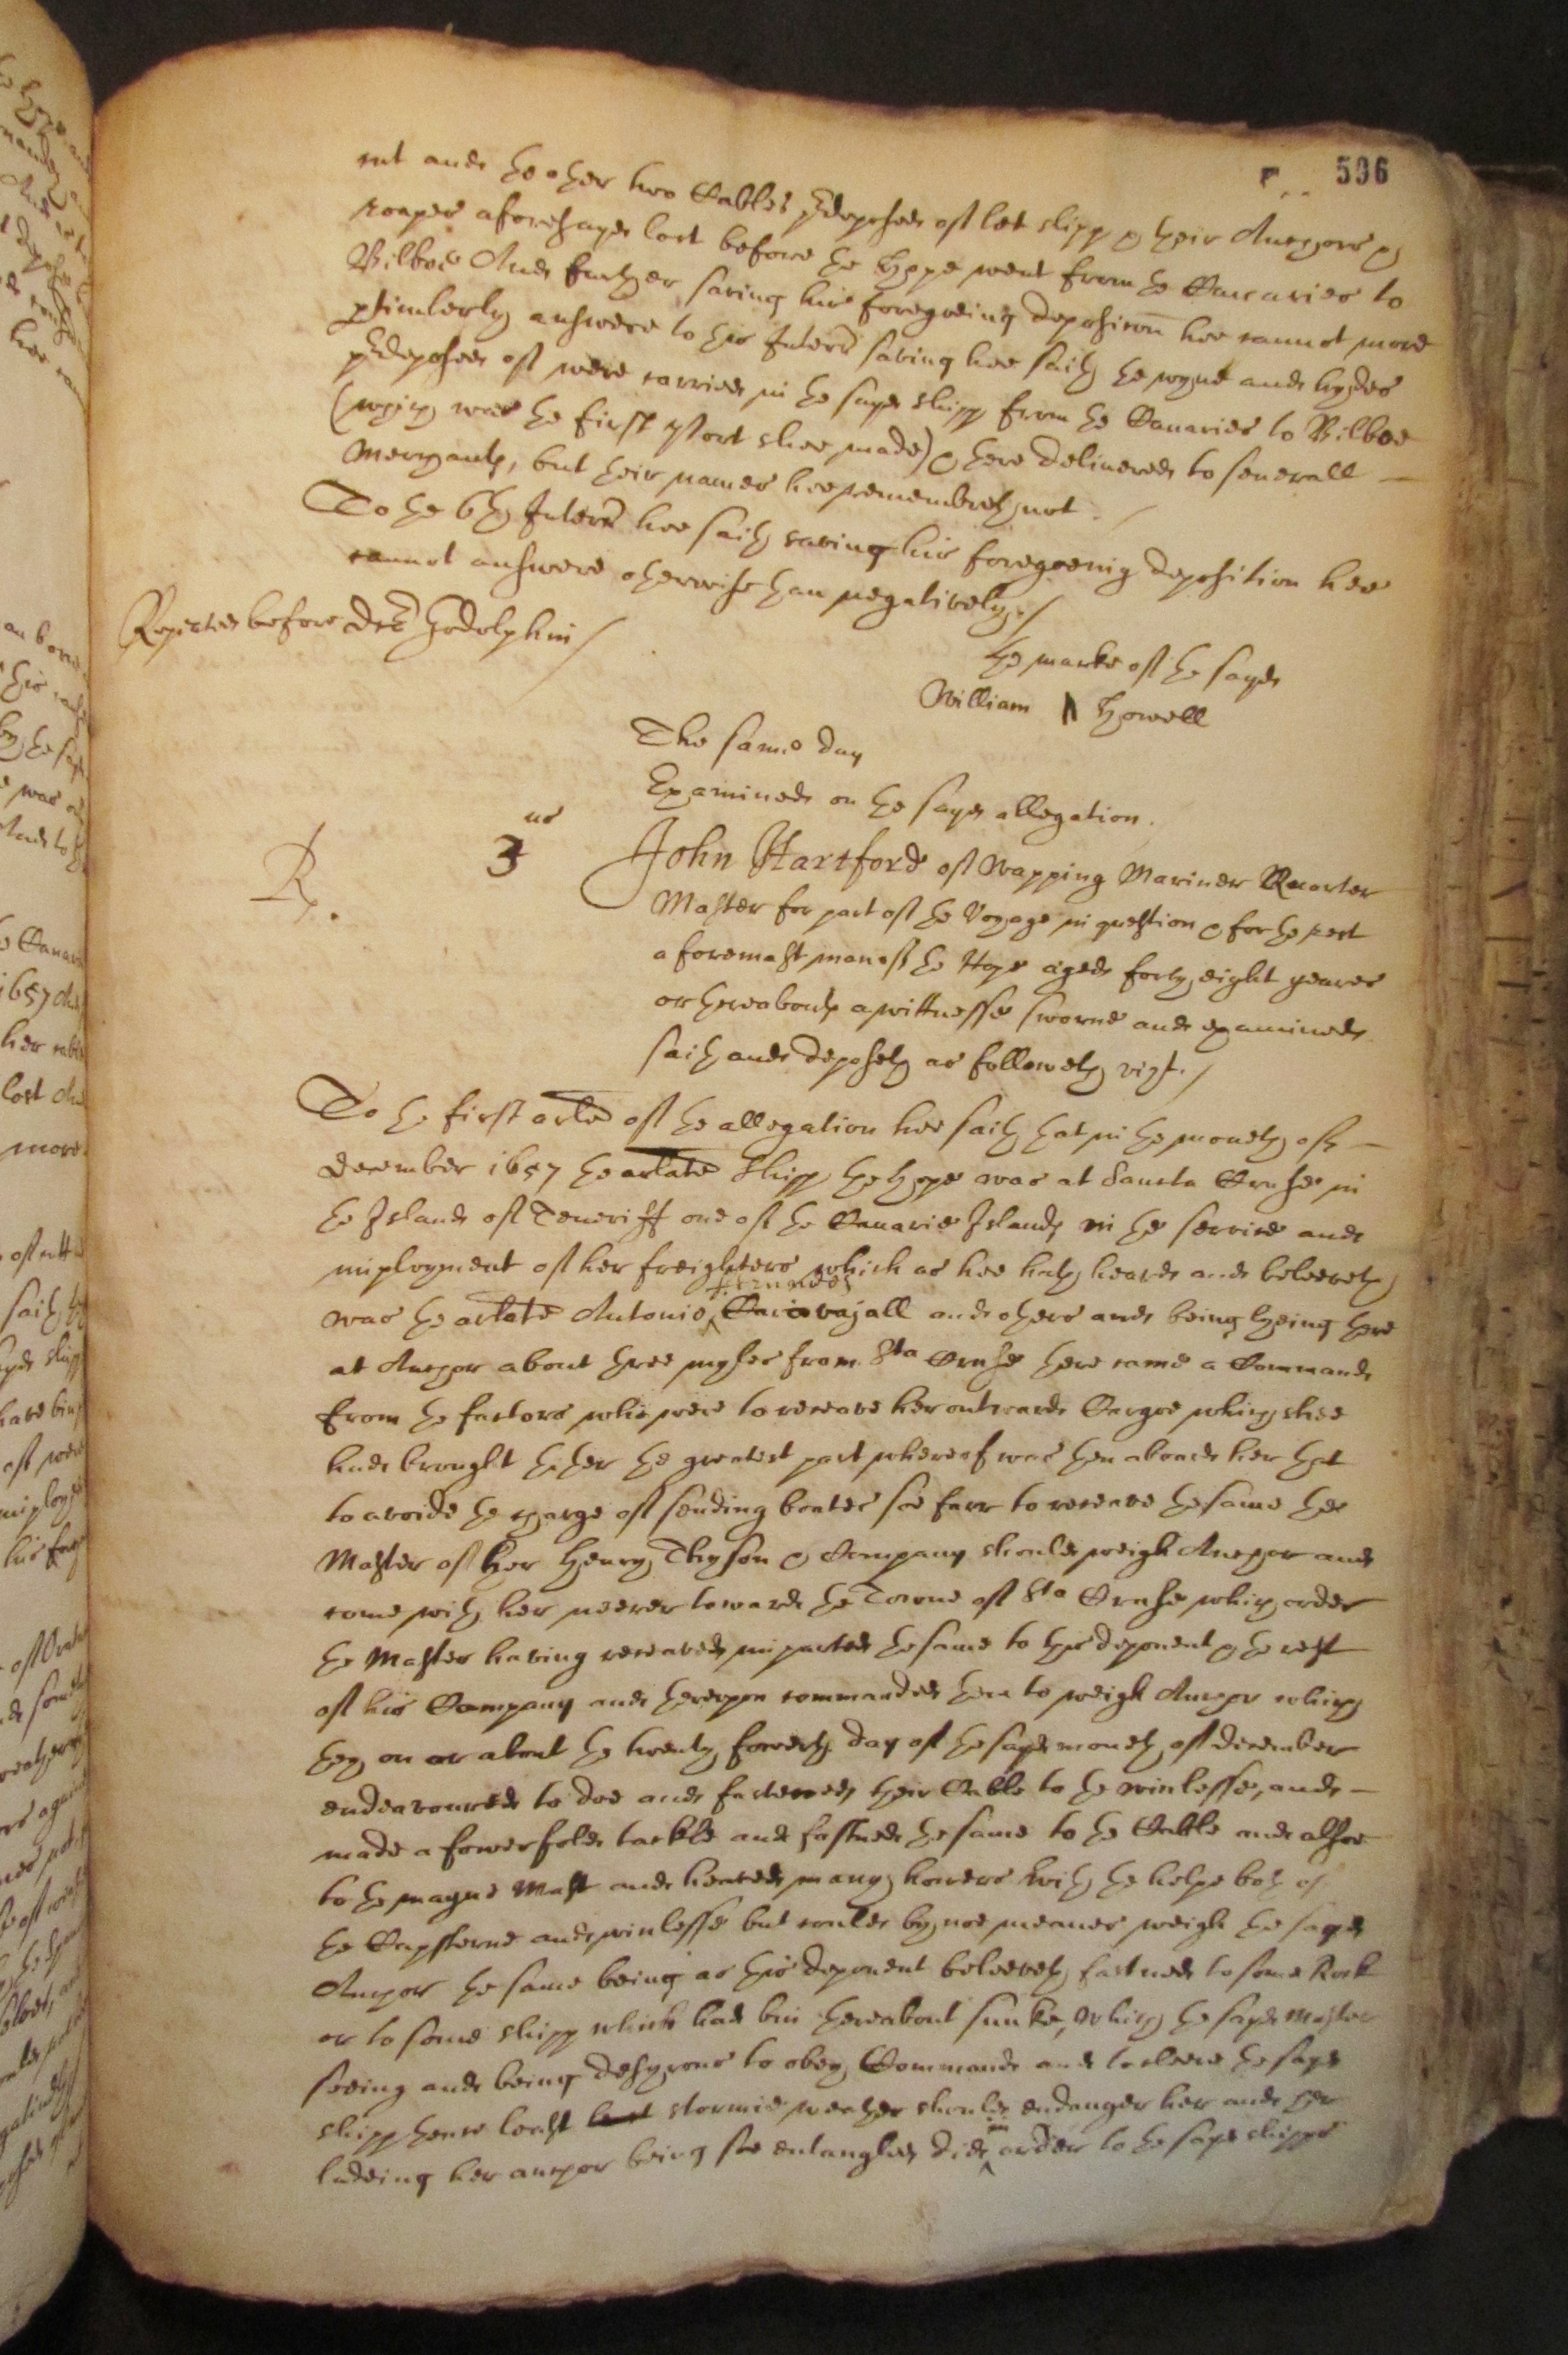 596
cut and the other two Cables predeposed of let slipp & their Anchors &
roapes aforesayd lost before the Hope went from the Canaries to
Bilboe And further saving his foregoeing deposition hee cannot more
perticulerly answere to this Interrie saving hee saith the wyne and hydes
predeposed of were carried in the sayd shipp from the Canaries to Bilboe
(which was the first Port shee made) & there delivered to severall
Merchants, but their names hee remembreth not
To the 6th Interrie hee saith saving his foregoeing deposition hee
cannot answere otherwise than negatively./
Repeated before dor Godolphin/
The marke of the sayd
William Howell
The same day
Examined on the sayd allegation.
R.
3us
John Hartford of Wapping Mariner Quarter
Master for part of the Voyage in question & for the rest
a foremast man of the Hope aged forty eight yeares
or thereabouts a wittnesse sworne and examined
saith and deposeth as followeth vizt./
To the first arle of the allegation hee saith that in the moneth of
december 1657 the arlate shipp the Hope was at Sancta Cruse in
the Island of Teneriff one of the Canarie Islands in the service and
imployment of her freighters which as hee hath heard and beleeveth
was the arlate Antonio Caravajall and others and being lyeing there
at Anchor about three myles from Sta Cruse there came a Command
from the factors who were to receave her outwards Cargoe which shee
had brought thither the greatest part whereof was then aboard her that
to avoide the charge of sending boates soe farr to receave the same the
Master of her Henry Thyson & Company should weigh Anchor and
come with her neerer towards the Towne of Sta Cruse which order
the Master having receaved imparted the same to this deponent & the rest
of his Company and thereupon commanded them to weigh Anchor which
they on or about the twenty fowerth day of the sayd moneth of december
endeavoured to doe and fastened their Cable to the winlesse, and
made a fowerfold tackle and fastned the same to the Cable and alsoe
to the mayne Mast and heaved many howers with the helpe both of
the Capsterne and winlesse but could by noe meanes weigh the sayd
Anchor the same being as this deponent beleeveth fastned to some Rock
or to some shipp which had bin thereabout sunke, which the sayd Master
seeing and being desyrous to obey Command and to cleere the sayd
shipp thence least stormie weather should endanger her and her
ladeing her anchor being soe entangled did in order to the sayd shipps